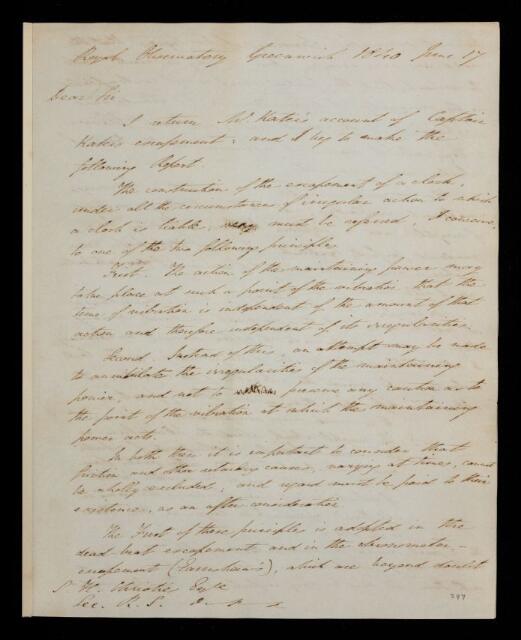 Royal Observatory Greenwich 1840 June 17
Dear Sir
I return Mr Kater's account of Captain
Kater's escapement: and I beg to make the
following Report.
The construction of the escapement of a clock,
under all the circumstances of irregular action to which
a clock is liable, must be referred, I conceive,
to one of the two following principles
First. The action of the maintaining power may
take place at such a point of the vibration that the
time of vibration is independent of the amount of that
action and therefore independent of its irregularities.
Second. Instead of this, an attempt may be made
to annihilate the irregularities of the maintaining
power, and not to any caution as to
the point of the vibration at which the maintaining
power acts.
In both these it is important to consider that
friction and other retarding causes, varying at times, cannot
be wholly excluded; and regard must be paid to their
existence, as an after consideration
The First of these principles is adopted in the
dead beat escapement and in the chronometer-
escapement (Earnshaw's), which are beyond doubt
S. H. Christie Esqre
Sec. R. S.